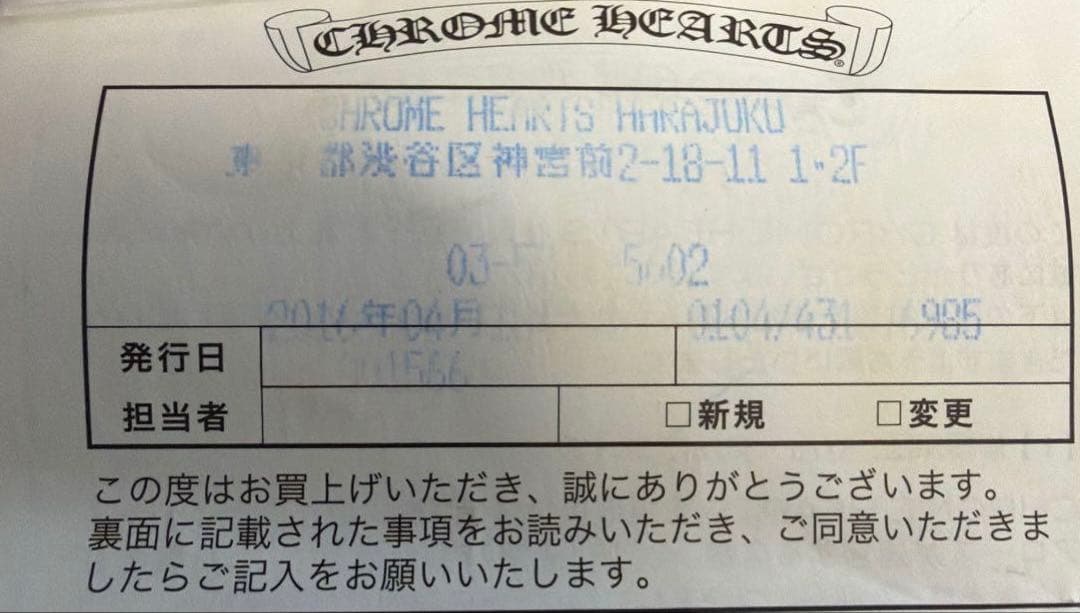 CHROME HEARTS®
CHROME HEARTS HARAJUKU
東 都渋谷区神宮前2-18-11 1・2F
03- 02
2016年04月 985
発行日
担当者 □新規 □変更
この度はお買上げいただき、誠にありがとうございます。
裏面に記載された事項をお読みいただき、ご同意いただきま
したらご記入をお願いいたします。